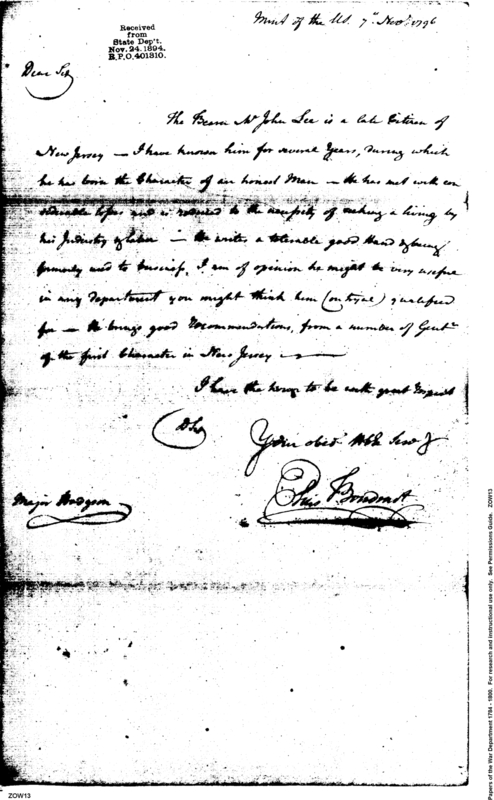 Mint of the US. 7th Novr. 1796
Received
from
State Dep't.
Nov. 24. 1894.
R.P.O. 401310.
Dear Sir
The Bearer Mr John Lee is a late Citizen of
New Jersey — I have known him for several Years, during which
he has born the Character of an honest Man — He has met with con
siderable losses and is reduced to the necessity of making a living by
his Industry & labor — He writes a tolerable good Hand & being
formerly used to business, I am of opinion he might be very useful
in any department you might think him (on tryal) qualified
for — He brings good recommendations, from a number of Gentn
of the first Character in New Jersey —
I have the honor to be with great respect
D Sir
Your obedt Hble Servt
Elias Boudinot
Major Hodgson
Papers of the War Department 1784 - 1800. For research and instructional use only. See Permissions Guide. ZOW13
ZOW13